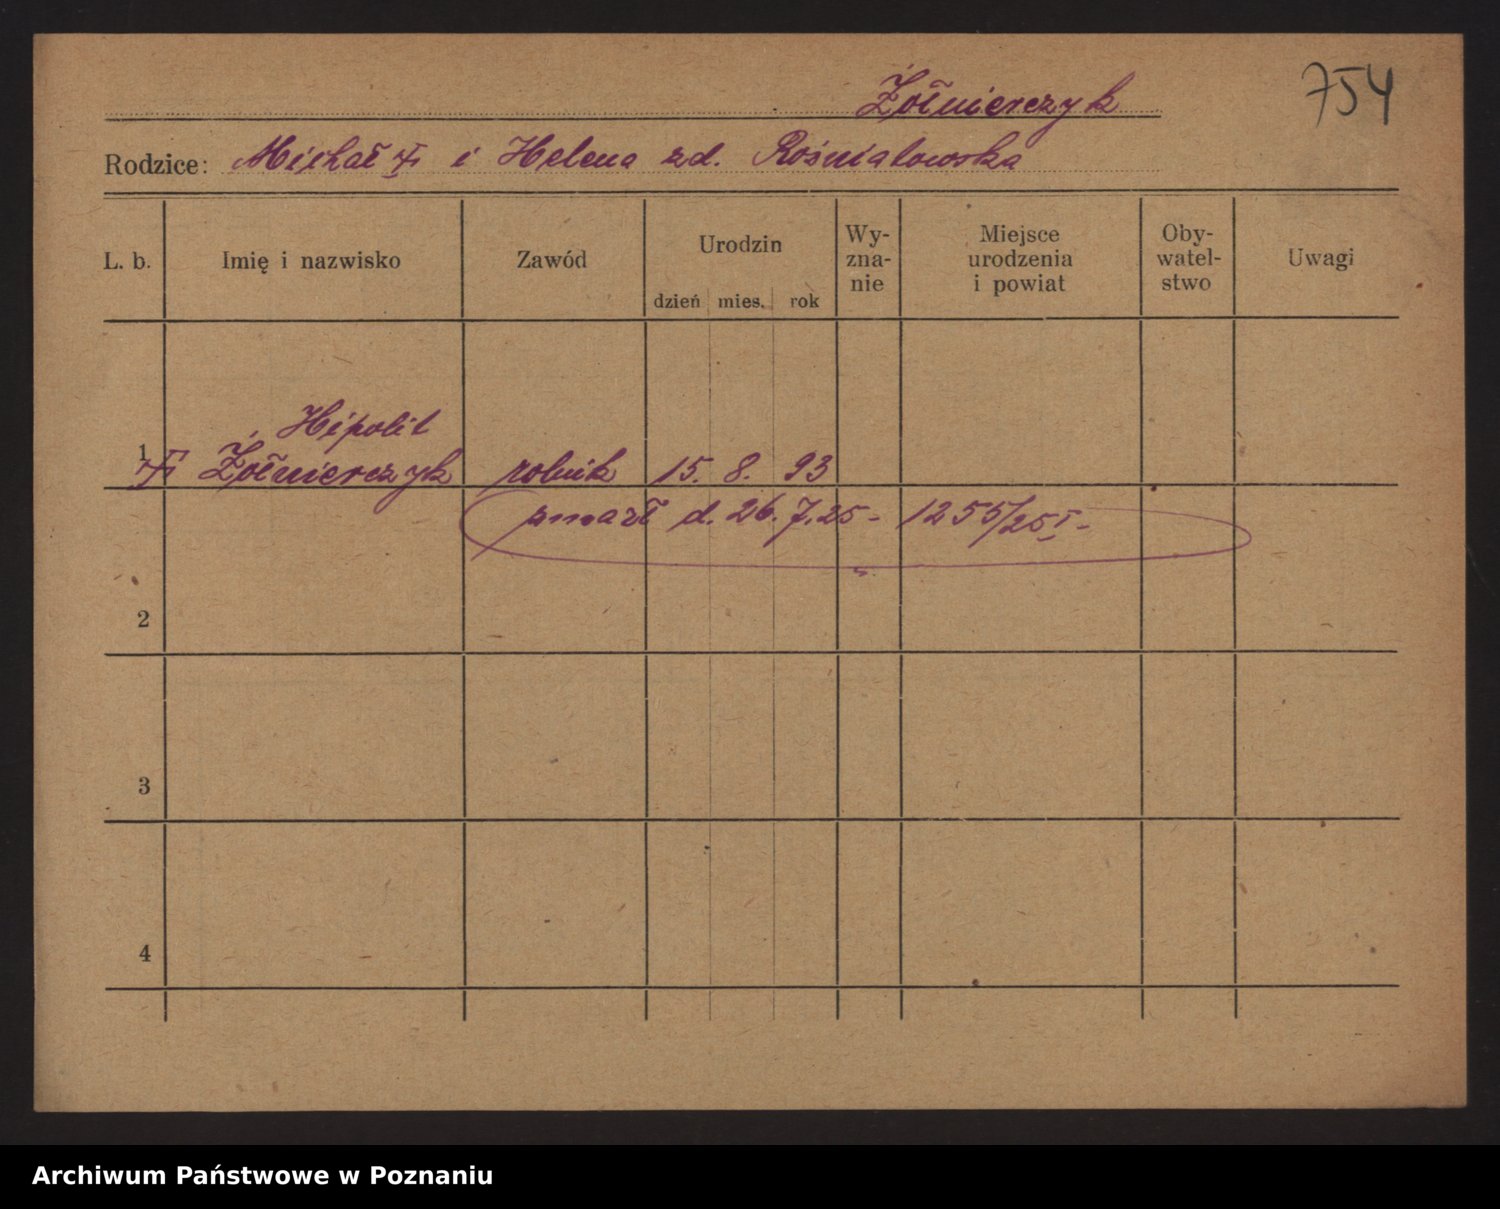 Żołnierczyk
754
Rodzice: Michał † i Helena zd. Rośniatowska
L. b. Imię i nazwisko Zawód Urodzin dzień mies. rok Wy-zna-nie Miejsce urodzenia i powiat Oby-watel-stwo Uwagi
Hipolit
1 † Żołnierczyk rolnik 15. 8. 93
zmarł d. 26. 7. 25 - 1255/25 I -
2
3
4
Archiwum Państwowe w Poznaniu